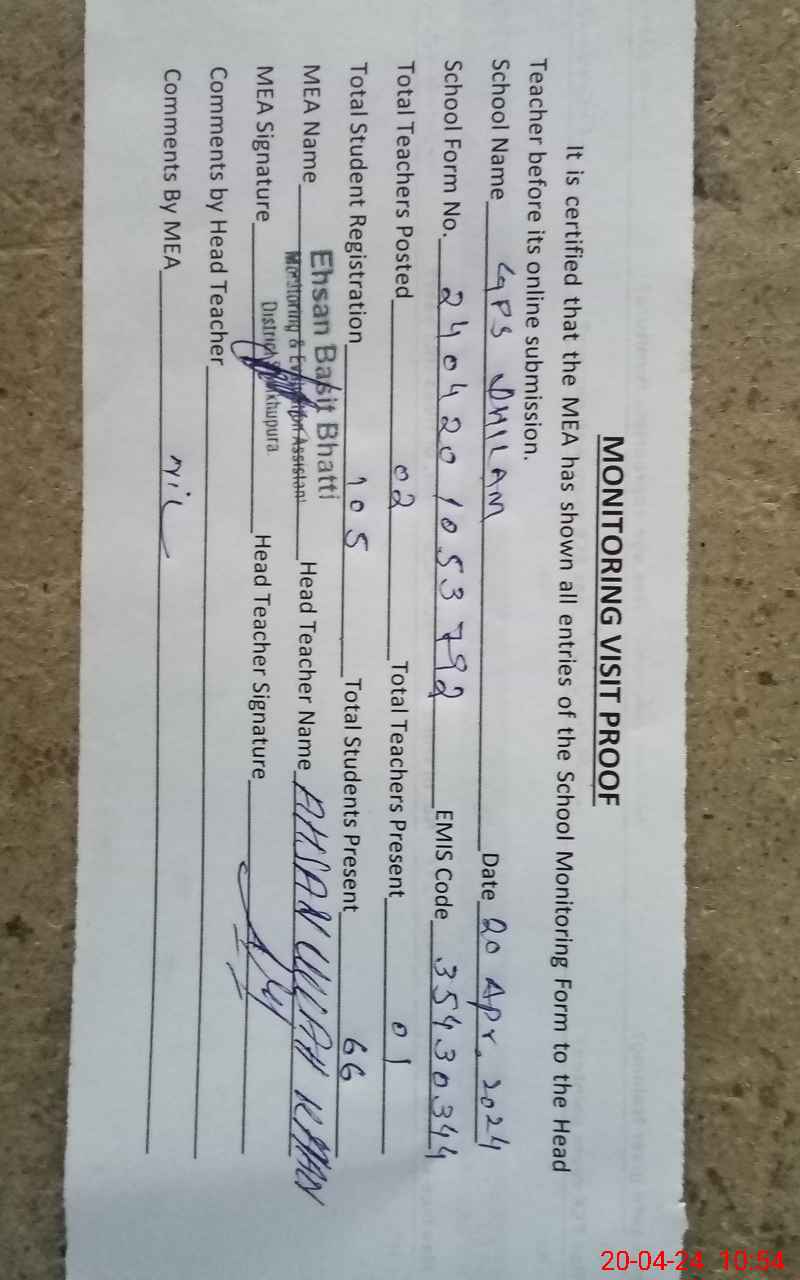 MONITORING VISIT PROOF
It is certified that the MEA has shown all entries of the School Monitoring Form to the Head
Teacher before its online submission.
School Name GPS DHILAM Date 20 Apr. 2024
School Form No. 2404201053792 EMIS Code 35430344
Total Teachers Posted 02 Total Teachers Present 01
Total Student Registration 105 Total Students Present 66
MEA Name Ehsan Basit Bhatti Head Teacher Name AHSAN ULLAH KHAN
Monitoring & Evaluation Assistant
MEA Signature District Sheikhupura Head Teacher Signature
Comments by Head Teacher
Comments By MEA Nil
20-04-24 10:54